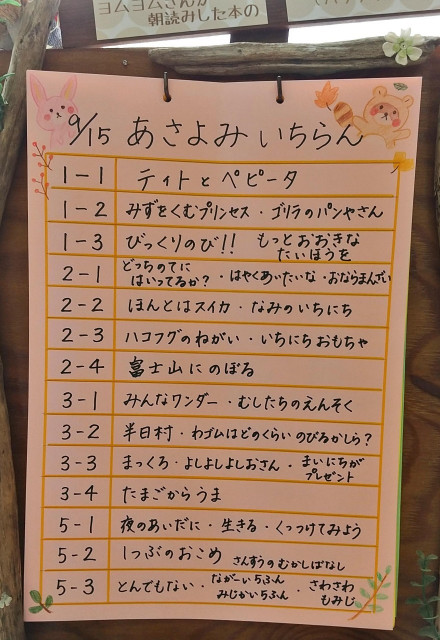 ヨムヨムさんが
朝読みした本の
9/15 あさよみ いちらん
1-1 ティトとペピータ
1-2 みずをくむプリンセス・ゴリラのパンやさん
1-3 びっくりのび!! もっとおおきな
たいほうを
2-1 どっちのてに
はいってるか?・はやくあいたいな・おならまんざい
2-2 ほんとはスイカ・なみのいちにち
2-3 ハコフグのねがい・いちにちおもちゃ
2-4 富士山にのぼる
3-1 みんなワンダー・むしたちのえんそく
3-2 半日村・わゴムはどのくらいのびるかしら?
3-3 まっくろ・よしよしよしおさん・まいにちが
プレゼント
3-4 たまごからうま
5-1 夜のあいだに・生きる・くっつけてみよう
5-2 1つぶのおこめ さんすうのむかしばなし
5-3 とんでもない・ながーい5ふん
みじかい5ふん・さわさわ
もみじ